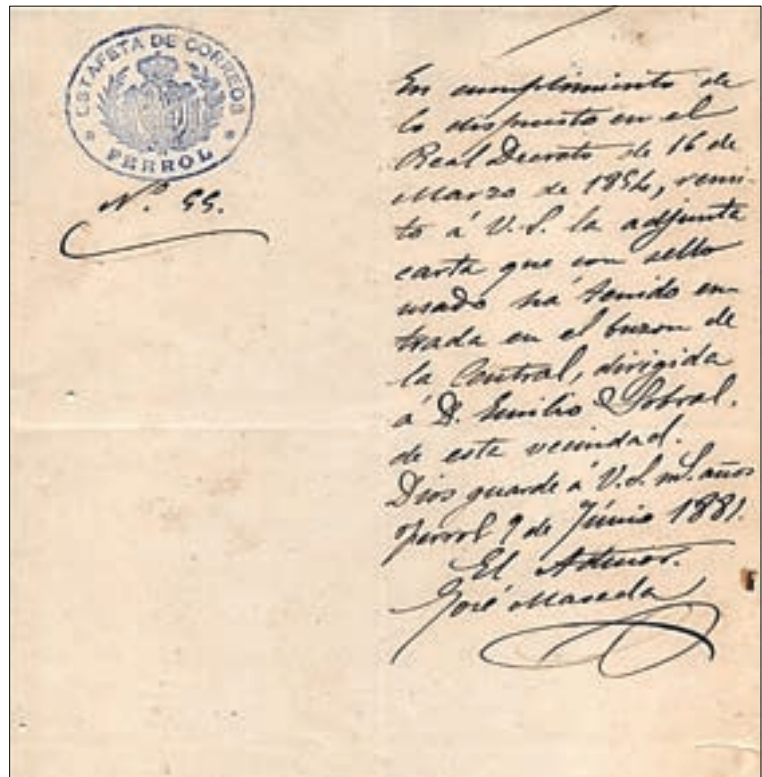 ESTAFETA DE CORREOS
FERROL
Nº 55.
En cumplimiento de
lo dispuesto en el
Real Decreto de 16 de
Marzo de 1854, remi-
to á V.S. la adjunta
carta que con sello
usado há tenido en-
trada en el buzon de
la Central, dirigida
á D. Emilio Sobral.
de esta vecindad.
Dios guarde á V.S. mS. años
Ferrol 9 de Júnio 1881.
El Admor.
José Maseda